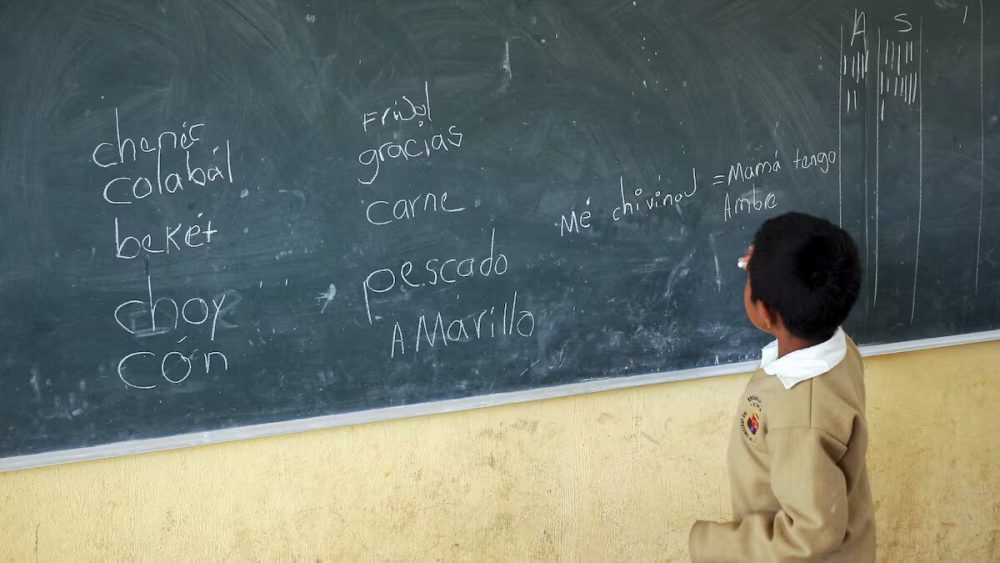 chenéc
colabál
bekét
choy
cón
Frijol
gracias
carne
pescado
AMárillo
Mé chivinoJ = Mamá tengo
Ambre
A S